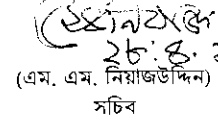 ২৮.৪.
(এম. এম. নিয়াজউদ্দিন)
সচিব